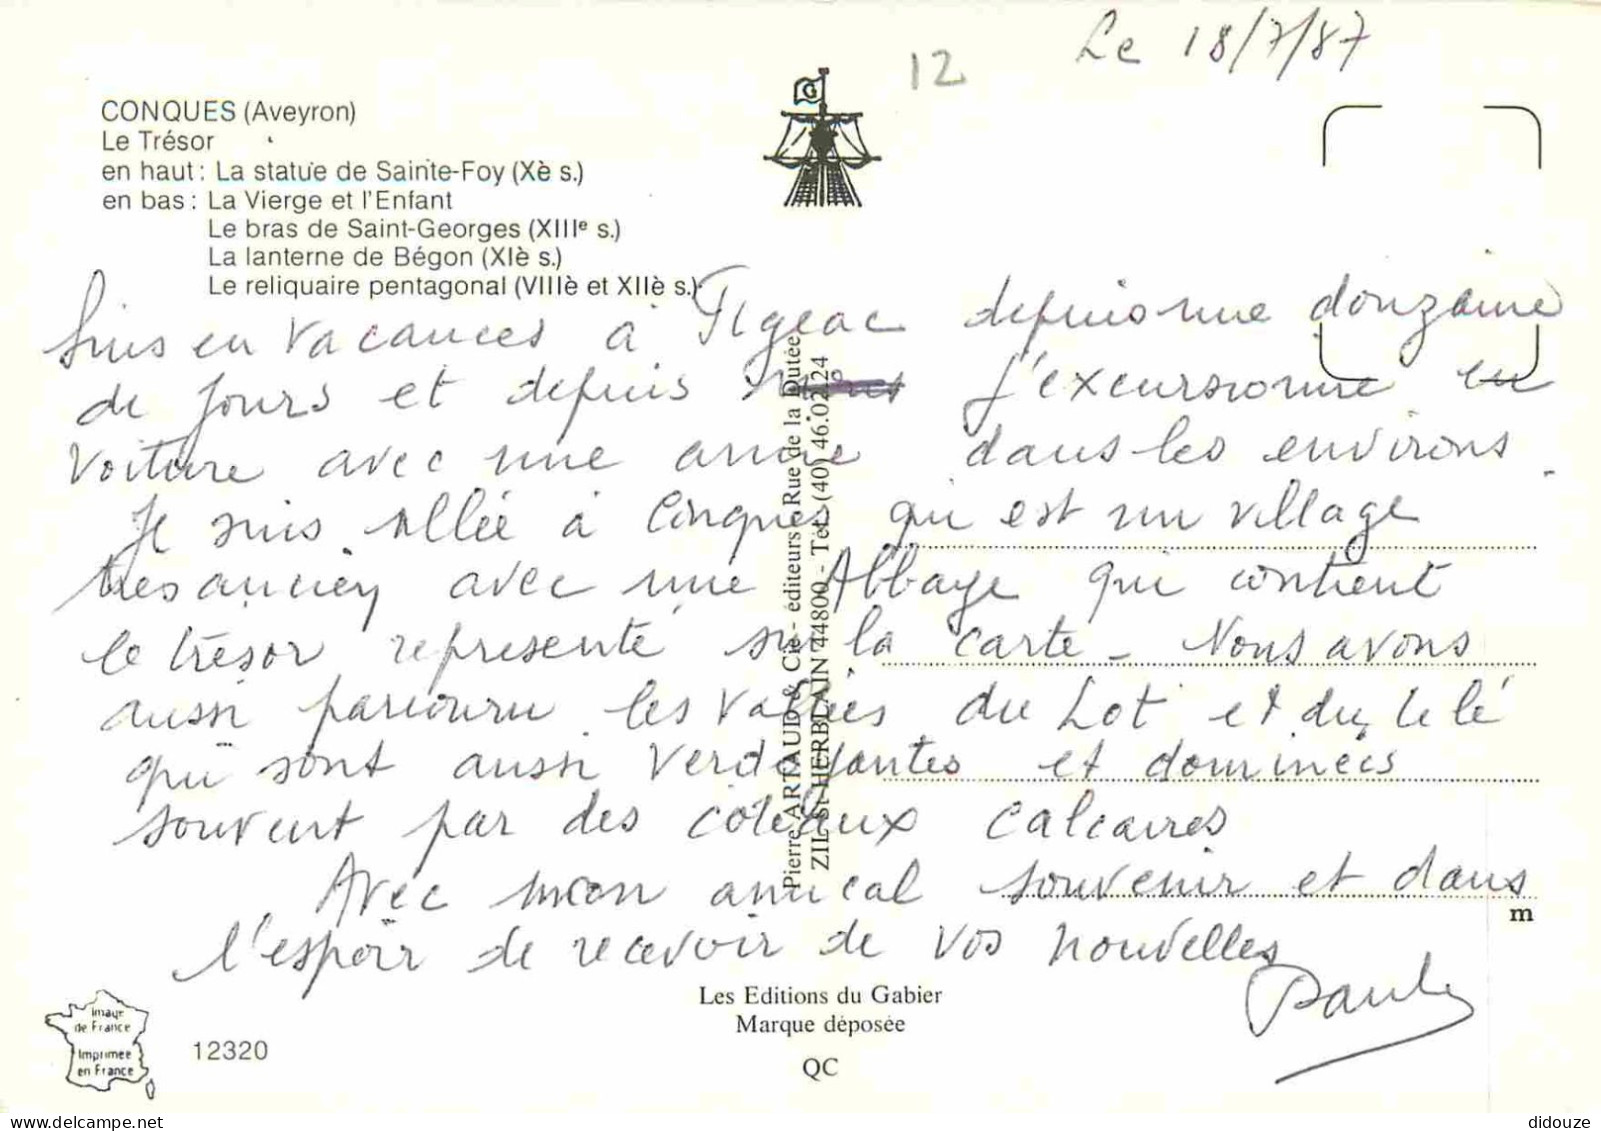 Le 18/7/87
12
CONQUES (Aveyron)
Le Trésor
en haut : La statue de Sainte-Foy (Xè s.)
en bas : La Vierge et l'Enfant
Le bras de Saint-Georges (XIIIe s.)
La lanterne de Bégon (XIè s.)
Le reliquaire pentagonal (VIIIè et XIIè s.)
G
Suis en vacances à Figeac depuis une douzaine
de jours et depuis j'excursionne en
voiture avec une amie dans les environs.
Je suis allée à Conques qui est un village
très ancien avec une Abbaye qui contient
le trésor représenté sur la carte - Nous avons
aussi parcouru les vallées du Lot et du Célé
qui sont aussi verdoyantes et dominées
souvent par des coteaux calcaires
Avec mon amical souvenir et dans
l'espoir de recevoir de vos nouvelles
Paule
Pierre ARTAUD & Cie - éditeurs - Rue de la Dutée
ZIL St-HERBLAIN 44800 - Tel. (40) 46.02.24
m
Les Editions du Gabier
Marque déposée
QC
Image
de France
Imprimée
en France
12320
didouze